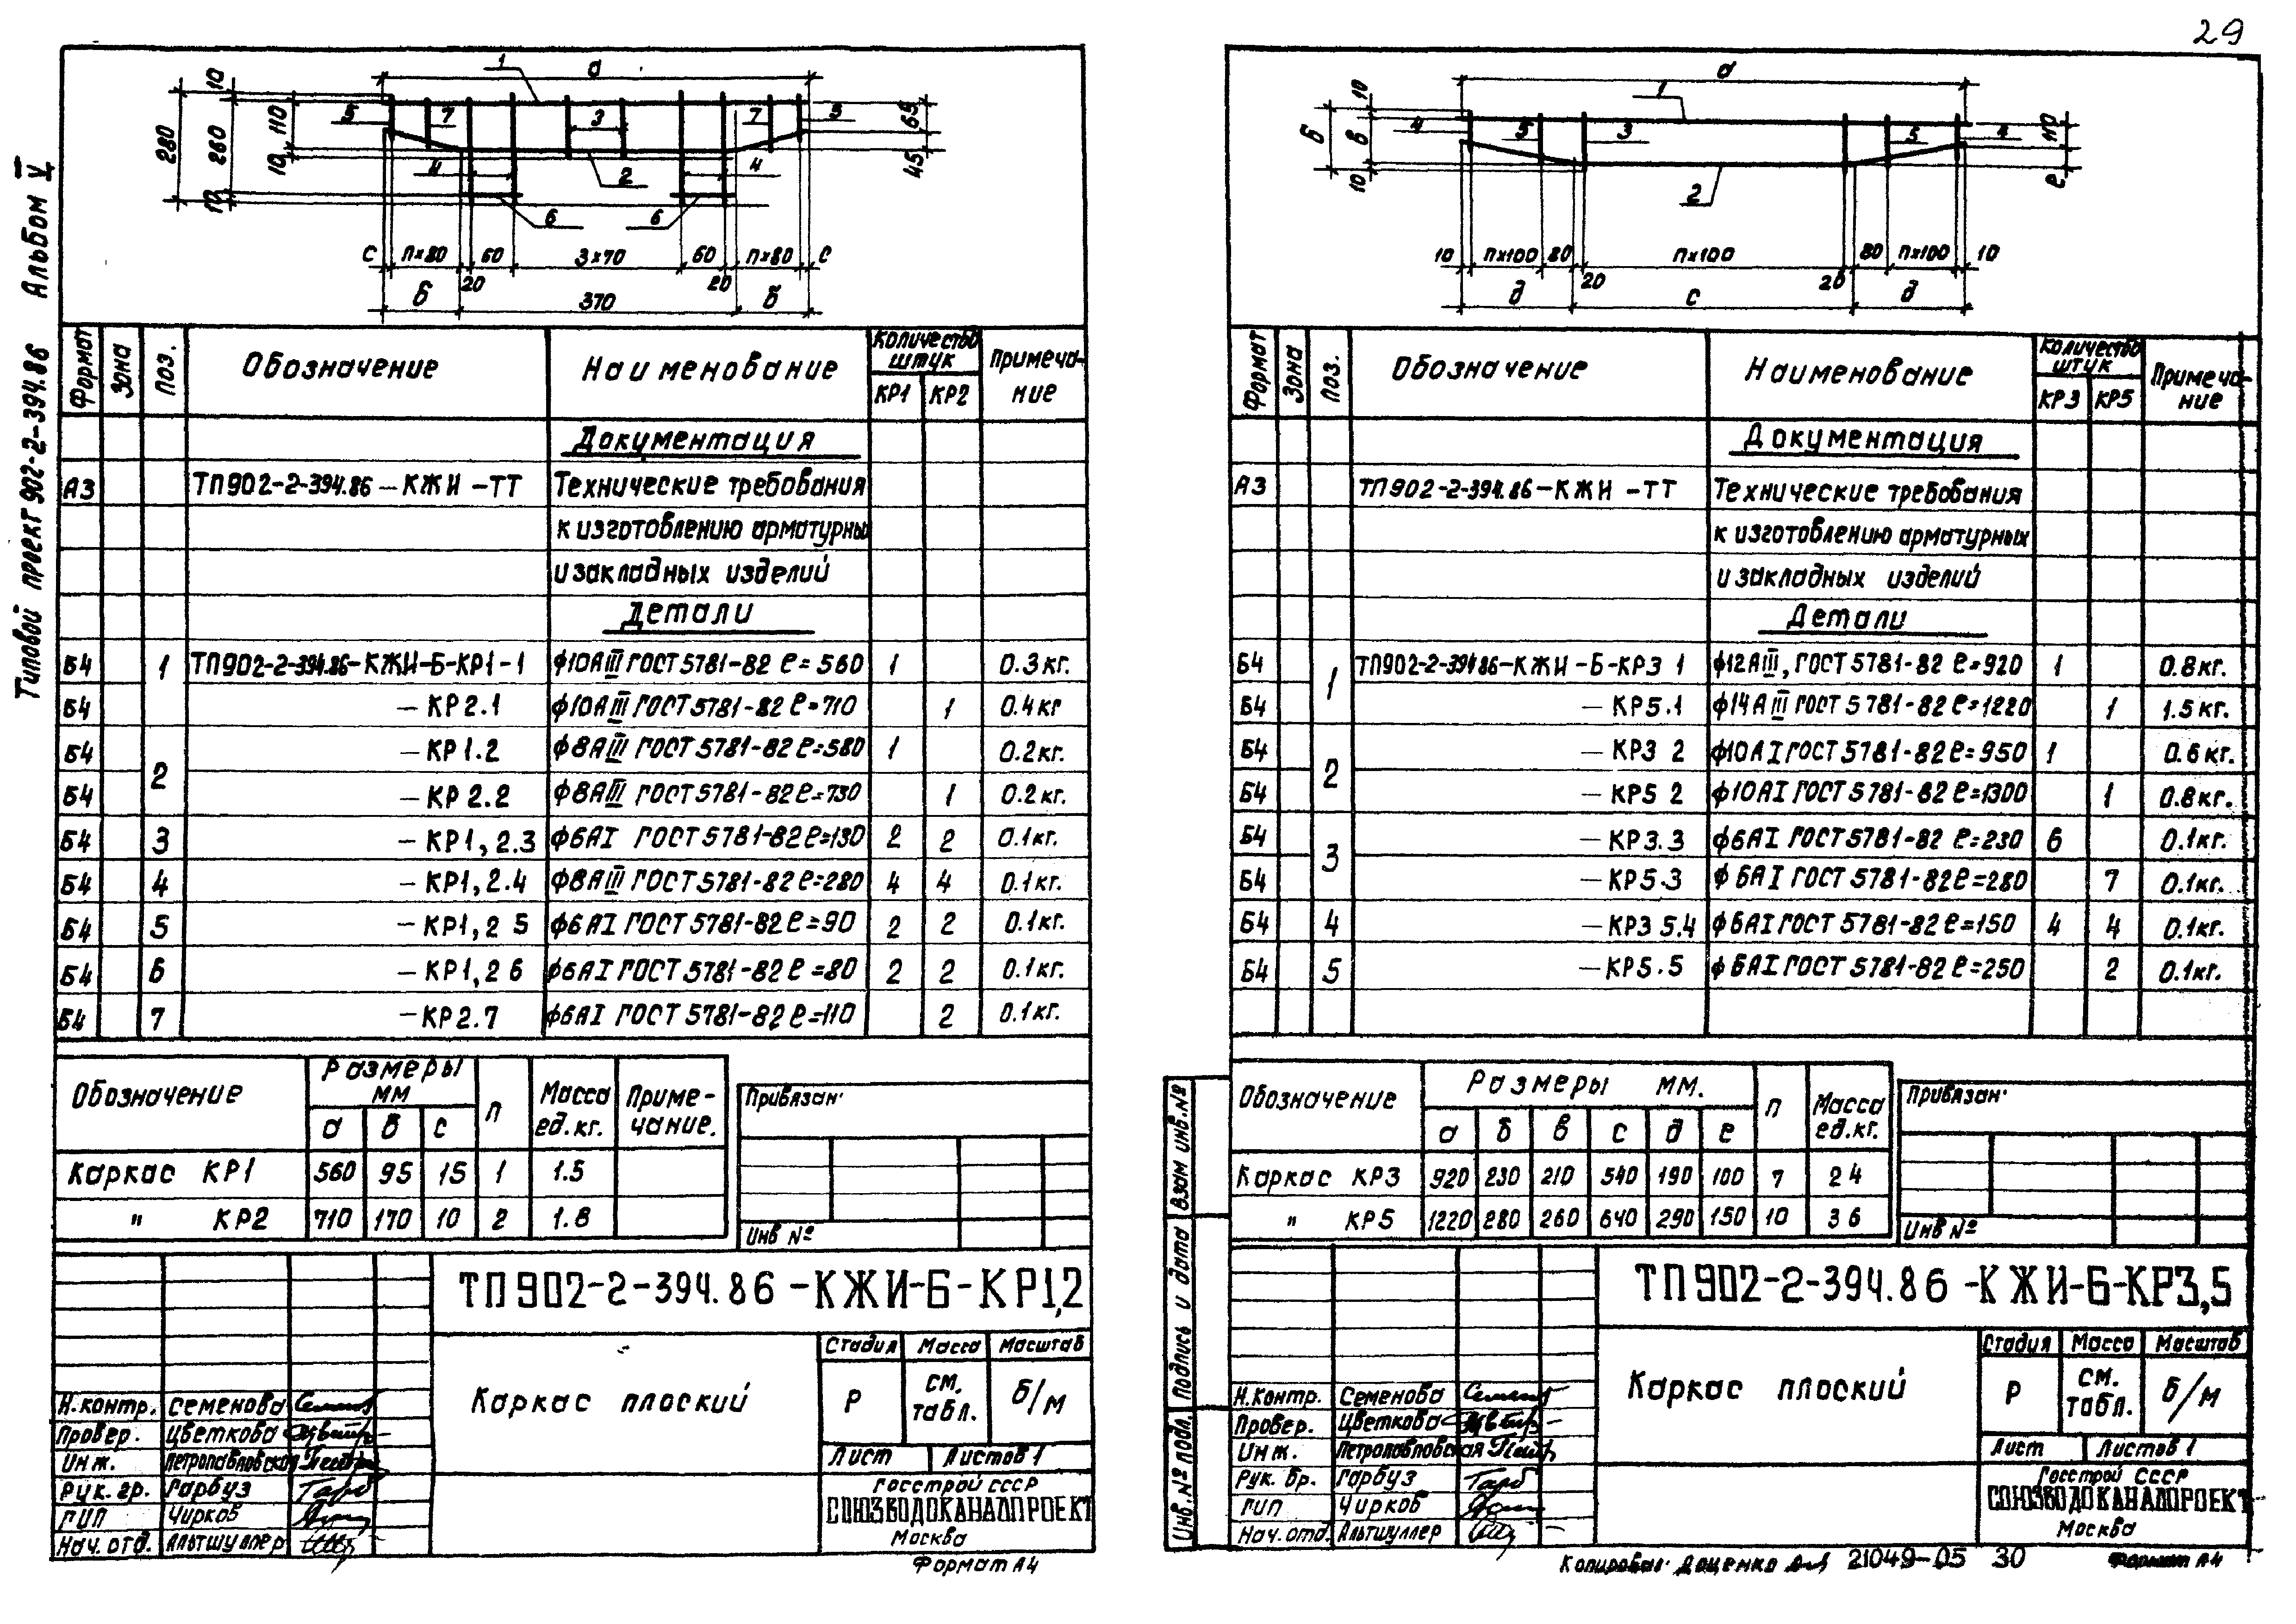 29
Типовой проект 902-2-394.86 Альбом V
1 а
10 5 7 3 7 5 65
280 260 110 10 10 4 2 4 45
6 6
с п×80 60 3×70 60 п×80 с
20 20
б 370 б
Формат Зона Поз. Обозначение Наименование Количество штук Примечание
КР1 КР2
Документация
А3 ТП902-2-394.86-КЖИ-ТТ Технические требования
к изготовлению арматурных
и закладных изделий
Детали
Б4 1 ТП902-2-394.86-КЖИ-Б-КР1-1 ф10АIII ГОСТ 5781-82 ℓ=560 1 0.3кг.
Б4 -КР2.1 ф10АIII ГОСТ 5781-82 ℓ=710 1 0.4кг
Б4 2 -КР1.2 ф8АIII ГОСТ 5781-82 ℓ=580 1 0.2кг.
Б4 -КР2.2 ф8АIII ГОСТ 5781-82 ℓ=730 1 0.2кг.
Б4 3 -КР1,2.3 ф6АI ГОСТ 5781-82 ℓ=130 2 2 0.1кг.
Б4 4 -КР1,2.4 ф8АIII ГОСТ 5781-82 ℓ=280 4 4 0.1кг.
Б4 5 -КР1,2 5 ф6АI ГОСТ 5781-82 ℓ=90 2 2 0.1кг.
Б4 6 -КР1,2 6 ф6АI ГОСТ 5781-82 ℓ=80 2 2 0.1кг.
Б4 7 -КР2.7 ф6АI ГОСТ 5781-82 ℓ=110 2 0.1кг.
Обозначение Размеры мм п Масса ед.кг. Примечание.
а б с
Каркас КР1 560 95 15 1 1.5
" КР2 710 170 10 2 1.8
Привязан:
Инв №
ТП902-2-394.86-КЖИ-Б-КР1,2
Каркас плоский
Стадия Масса Масштаб
Р см. табл. б/м
Лист Листов 1
Н.контр. Семенова
Провер. Цветкова
Инж. Петропавловская
Рук. гр. Гарбуз
ГИП Чирков
Нач. отд. Альтшуллер
Госстрой СССР
СОЮЗВОДОКАНАЛПРОЕКТ
Москва
Формат А4
а
1
10 4 5 3 5 4 110
б в 10 2 е
10 п×100 80 п×100 80 п×100 10
20 20
д с д
Формат Зона Поз. Обозначение Наименование Количество штук Примечание
КР3 КР5
Документация
А3 ТП902-2-394.86-КЖИ-ТТ Технические требования
к изготовлению арматурных
и закладных изделий
Детали
Б4 1 ТП902-2-394.86-КЖИ-Б-КР3 1 ф12АIII, ГОСТ 5781-82 ℓ=920 1 0.8кг.
Б4 -КР5.1 ф14АIII ГОСТ 5781-82 ℓ=1220 1 1.5кг.
Б4 2 -КР3 2 ф10АI ГОСТ 5781-82 ℓ=950 1 0.6кг.
Б4 -КР5 2 ф10АI ГОСТ 5781-82 ℓ=1300 1 0.8кг.
Б4 3 -КР3.3 ф6АI ГОСТ 5781-82 ℓ=230 6 0.1кг.
Б4 -КР5.3 ф6АI ГОСТ 5781-82 ℓ=280 7 0.1кг.
Б4 4 -КР3 5.4 ф6АI ГОСТ 5781-82 ℓ=150 4 4 0.1кг.
Б4 5 -КР5.5 ф6АI ГОСТ 5781-82 ℓ=250 2 0.1кг.
Обозначение Размеры мм. п Масса ед.кг.
а б в с д е
Каркас КР3 920 230 210 540 190 100 7 2 4
" КР5 1220 280 260 640 290 150 10 3 6
Привязан:
Инв №
Инв.№ подл. Подпись и дата Взам инв.№
ТП902-2-394.86-КЖИ-Б-КР3,5
Каркас плоский
Стадия Масса Масштаб
Р см. табл. б/м
Лист Листов 1
Н.контр. Семенова
Провер. Цветкова
Инж. Петропавловская
Рук. бр. Гарбуз
ГИП Чирков
Нач. отд. Альтшуллер
Госстрой СССР
СОЮЗВОДОКАНАЛПРОЕКТ
Москва
Копировал: Доценко 21049-05 30 Формат А4